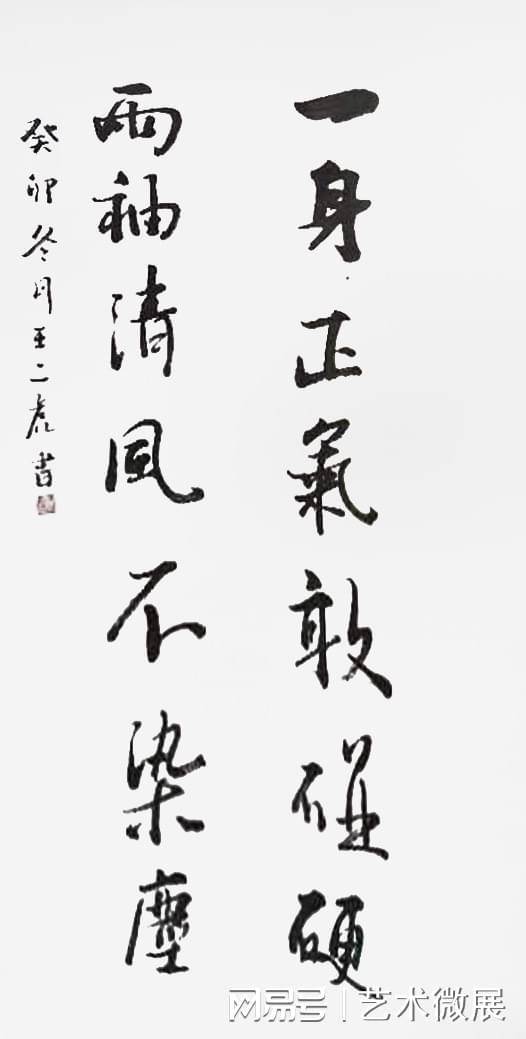 一身正氣敢碰硬
兩袖清風不染塵
癸卯冬月王二虎書
网易号 | 艺术微展